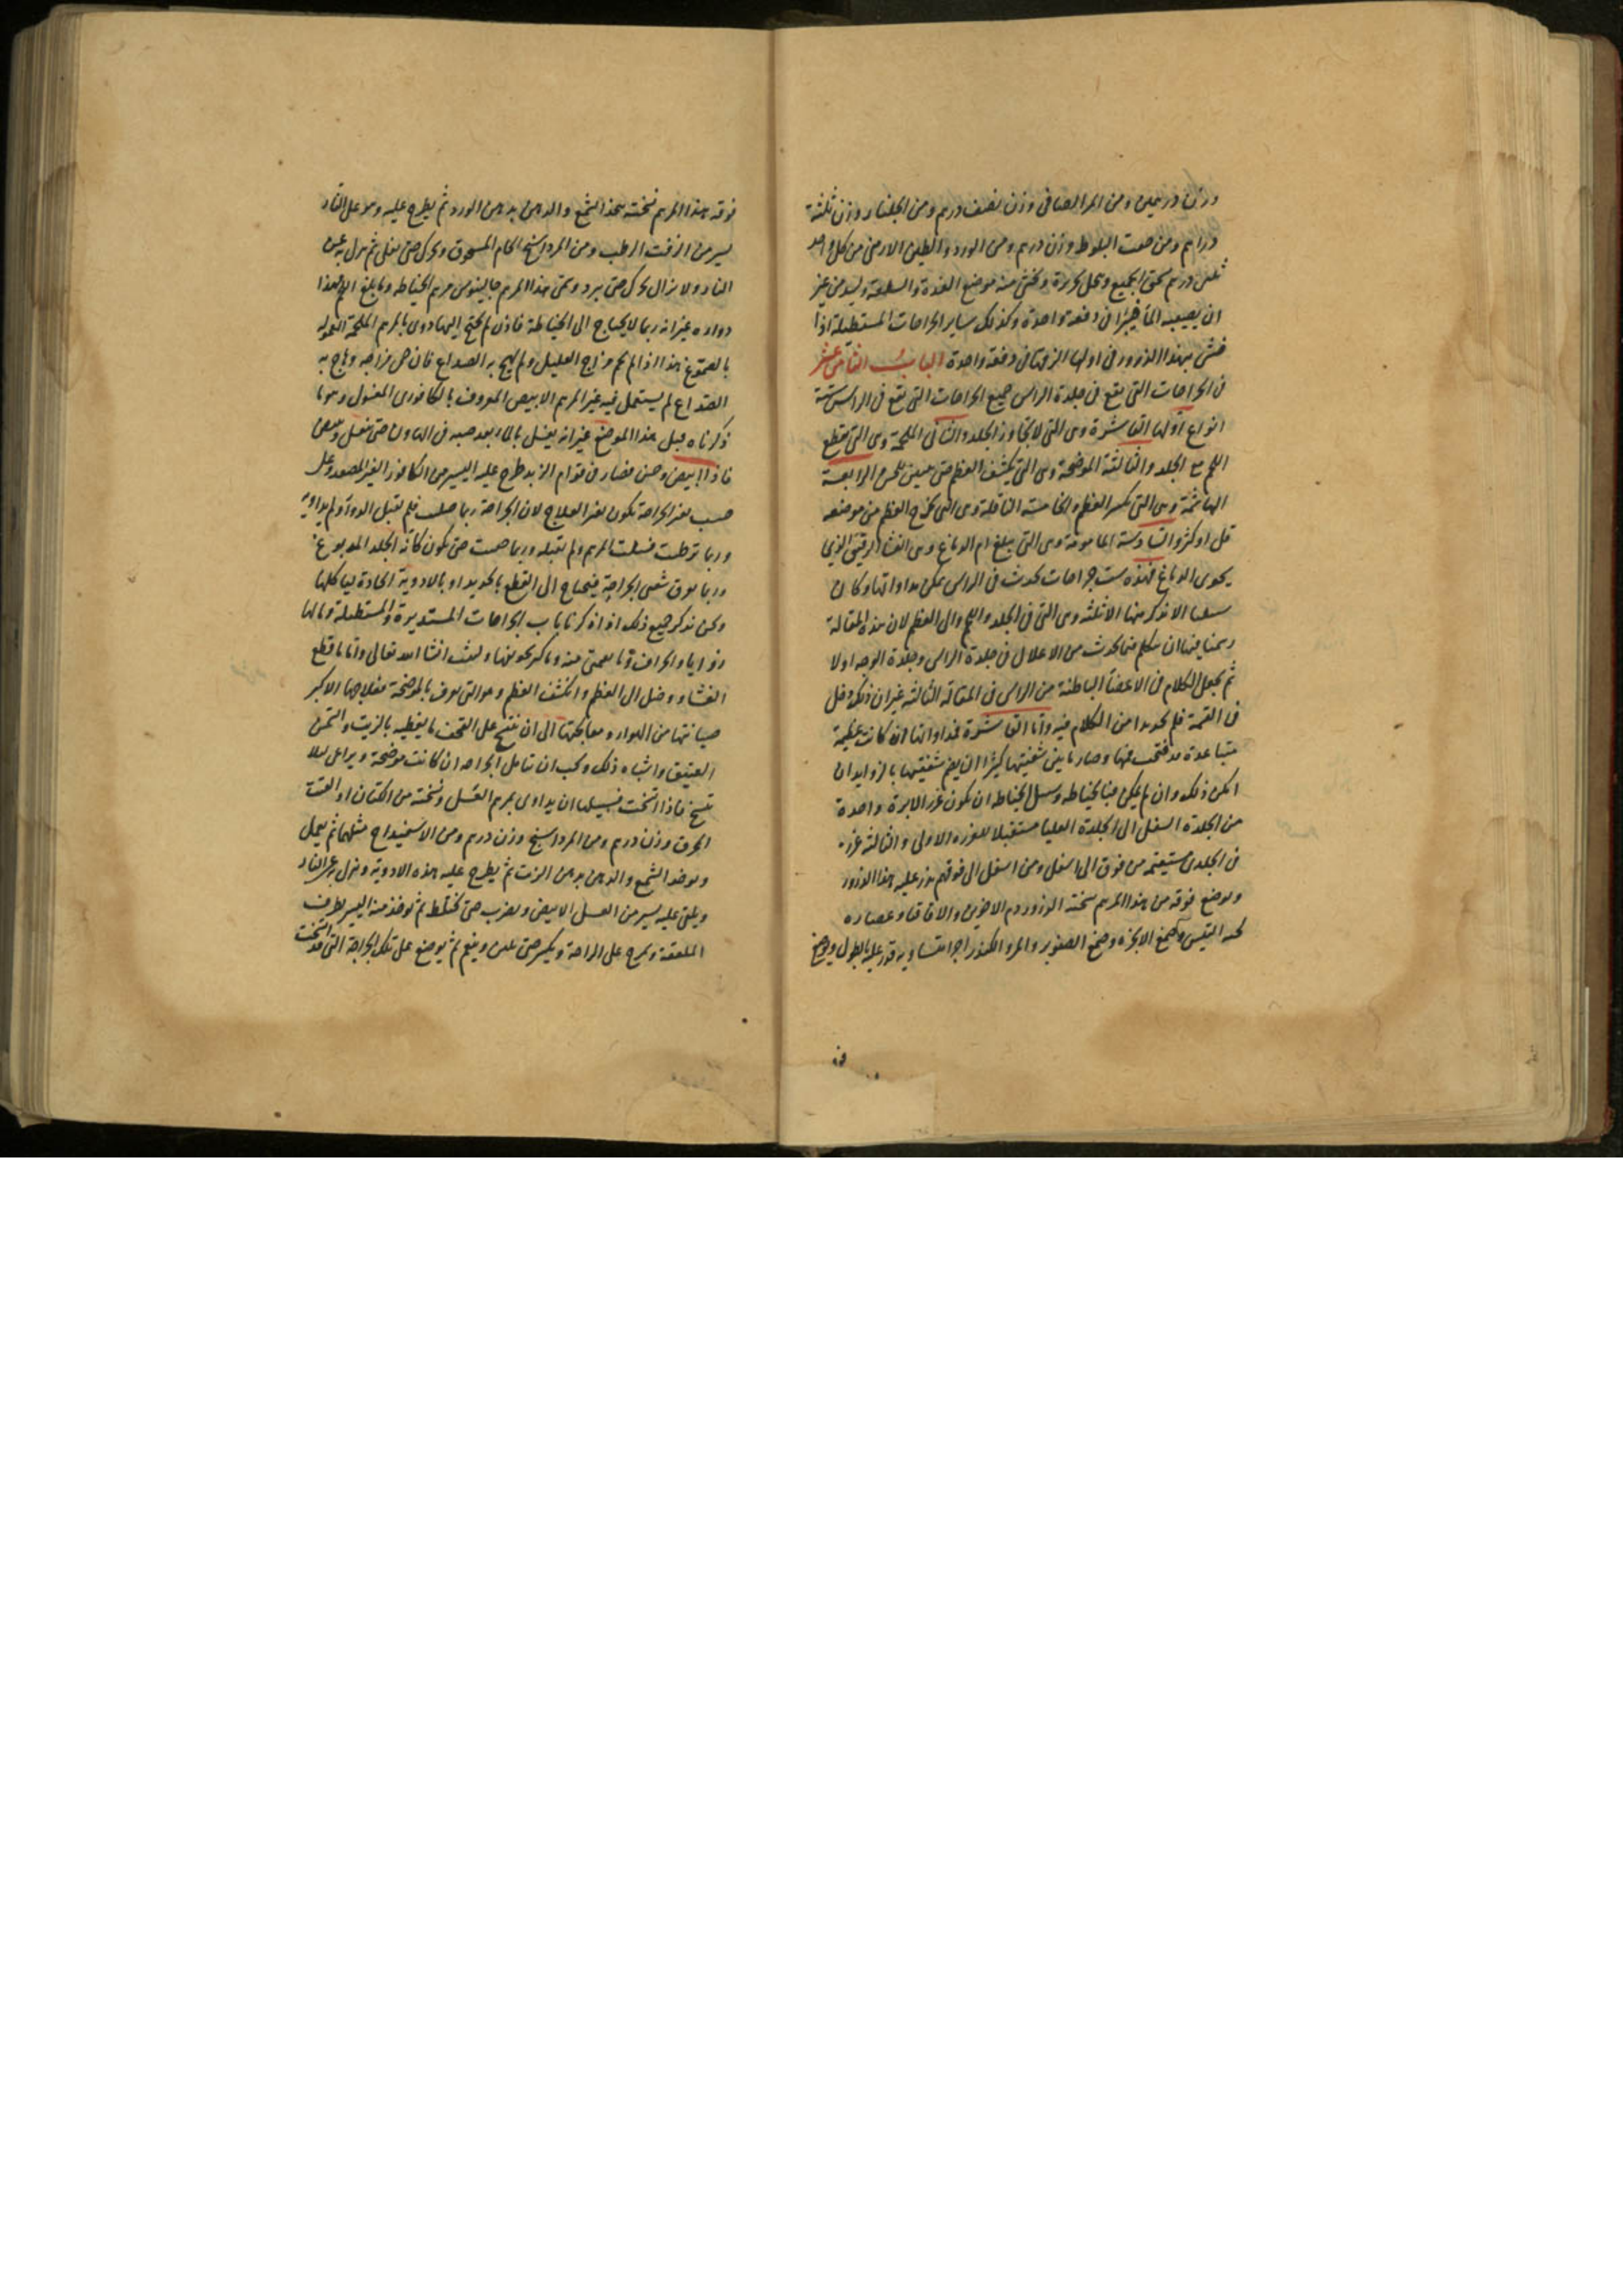 وزن درهمين ومن المر الصافى وزن نصف درهم ومن الجلنار وزن ثلثة
دراهم ومن جفت البلوط وزن درهم ومن الورد والطين الارمنى من كل واحد
ثلثى درهم يسحق الجميع ويحل بحريرة ويحشى منه موضع الغدة والسلعة وليس من غير
ان يصيبه الما فيبرا فى دفعة واحدة وكذلك ساير الجراحات المستطيلة اذا
حشى بهذا الذرور فى اولها الزقها فى دفعة واحدة الباب الثامن عشر
فى الجراحات التى تقع فى جلدة الراس جميع الجراحات التى تقع فى الراس ستة
انواع اولها القاشرة وهى التى لا تجاوز الجلد والثانى الملحمة وهى التى تقطع
اللحم مع الجلد والثالثة الموضحة وهى التى يكشف العظم حتى يتبين للحس الرابعة
الهاشمة وهى التى تكسر العظم والخامسة الناقلة وهى التى تخرج العظم من موضعه
قل او كثر والسادسة المامومة وهى التى يبلغ ام الدماغ وهى الغشا الرقيق الذى
يحوى الدماغ فهذه ست جراحات تحدث فى الراس يمكن مداواتها وكان
سبيلنا الا نذكر منها الا ثلثة وهى التى فى الجلد واللحم والى العظم لان هذه المقالة
رسمنا فيها ان نتكلم فيما يحدث من الاعلال فى جلدة الراس وجلدة الوجه اولا
ثم نجعل الكلام فى الاعضا الباطنة من الراس فى المقالة الثالثة غير ان ذلك دخل
فى القسمة فلم نجد بدا من الكلام فيه واما القاشرة فمداواتها ان كانت عظيمة
متباعدة قد فتحت فمها وصار ما بين شفتيها كبيرا ان يضم شفتيها بالزوايد ان
امكن ذلك وان لم يمكن فبالخياطه وسبيل الخياطه ان تكون غرز الابرة واحدة
من الجلدة السفلى الى الجلدة العليا مستقبلا للغرزه الاولى والثالثة غرزه
فى الجلدين مستقيمه من فوق الى اسفل ومن اسفل الى فوق ثم يذر عليه هذا الذرور
ويوضع فوقه من هذا المرهم نسخة الذرور دم الاخوين والاقاقيا وعصاره
لحية التيس وصمغ الابخره وصمغ الصنوبر والمر والكندر اجزا متساويه يذر عليه بالطول ويوضع
فوقه هذا المرهم نسخته يتخذ الشمع والدهن بدهن الورد ثم يطرح عليه وهو على النار
يسير من الزفت الرطب ومن المرداسنج الخام المسحوق ويحرك حتى يغلى ثم ينزل به عن
النار ولا يزال يحرك حتى يبرد ويسمى هذا المرهم جالينوس مرهم الخياطه وما بلغ الى هذا
دواوه غير انه ربما لا يحتاج الى الخياطة فاذن لم يحتج اليها دوى بالمرهم الملحمة المعمولة
بالصموغ هذا اذا لم يحم مزاج العليل ولم يهج به الصداع فان حمى مزاجه وهاج به
الصداع لم يستعمل فيه غير المرهم الابيض المعروف بالكافورى المغسول وهو ما
ذكرناه قبل هذا الموضع غير انه يغسل بالماء بعد صبه فى الهاون حتى ينغسل ويبيض
فاذا ابيض وحسن فصار فى قوام الزبد طرح عليه اليسير من الكافور الغير المصعد وعلى
حسب تغير الجراحة يكون تغير العلاج لان الجراحة ربما صلبت فلم تقبل الدوآ ولم يداويه
وربما ترطبت فسلت المرهم ولم تقبله وربما صحت حتى يكون كانه الجلد المدبوغ
وربما تعوق شفتى الجراحة فيحتاج الى القطع بالحديد او بالادوية الحادة لياكلها
ونحن نذكر جميع ذلك اذا ذكرنا باب الجراحات المستديرة والمستطيلة وما لها
زوايا وانحراف وما يعمق منه وما كبر تجويفها وليث انشا الله تعالى واما ما قطع
الغشاء ووصل الى العظم وانكشف العظم وهو التى تعرف بالموضحة فعلاجها الاكبر
صيانتها من الهواء ومعالجتها الى ان ينتج على القحف ما يغطيه بالزيت والسمن
العتيق واشباه ذلك ويجب ان تتامل الجراحه ان كانت موضحة ويراعى ليلا
تتسخ فاذا اتسخت فسبيلها ان يداوى بمرهم العسل ونسخته من الكتان او القنب
المحرق وزن درهم ومن المرداسنج وزن درهم ومن الاسفيداج مثلهما ثم يعمل
ويوخذ الشمع والدهن بدهن الزيت ثم يطرح عليه هذه الادوية وينزل به عن النار
ويلقى عليه يسير من العسل الابيض ويضرب حتى يختلط ثم يوخذ منه اليسير بطرف
الملعقة ويمرح على الراحة ويكسر حتى يلين وينعم ثم يوضع على تلك الجراحة التى قد اتسخت